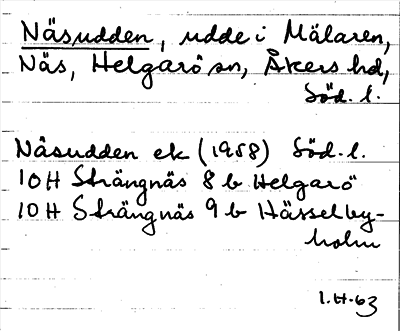 Näsudden, udde i Mälaren,
Näs, Helgarö sn, Åkers hd,
Söd. l.
Näsudden ek (1958) Söd. l.
10H Strängnäs 8 b Helgarö
10H Strängnäs 9 b Hässelby-
holm
I.H-63